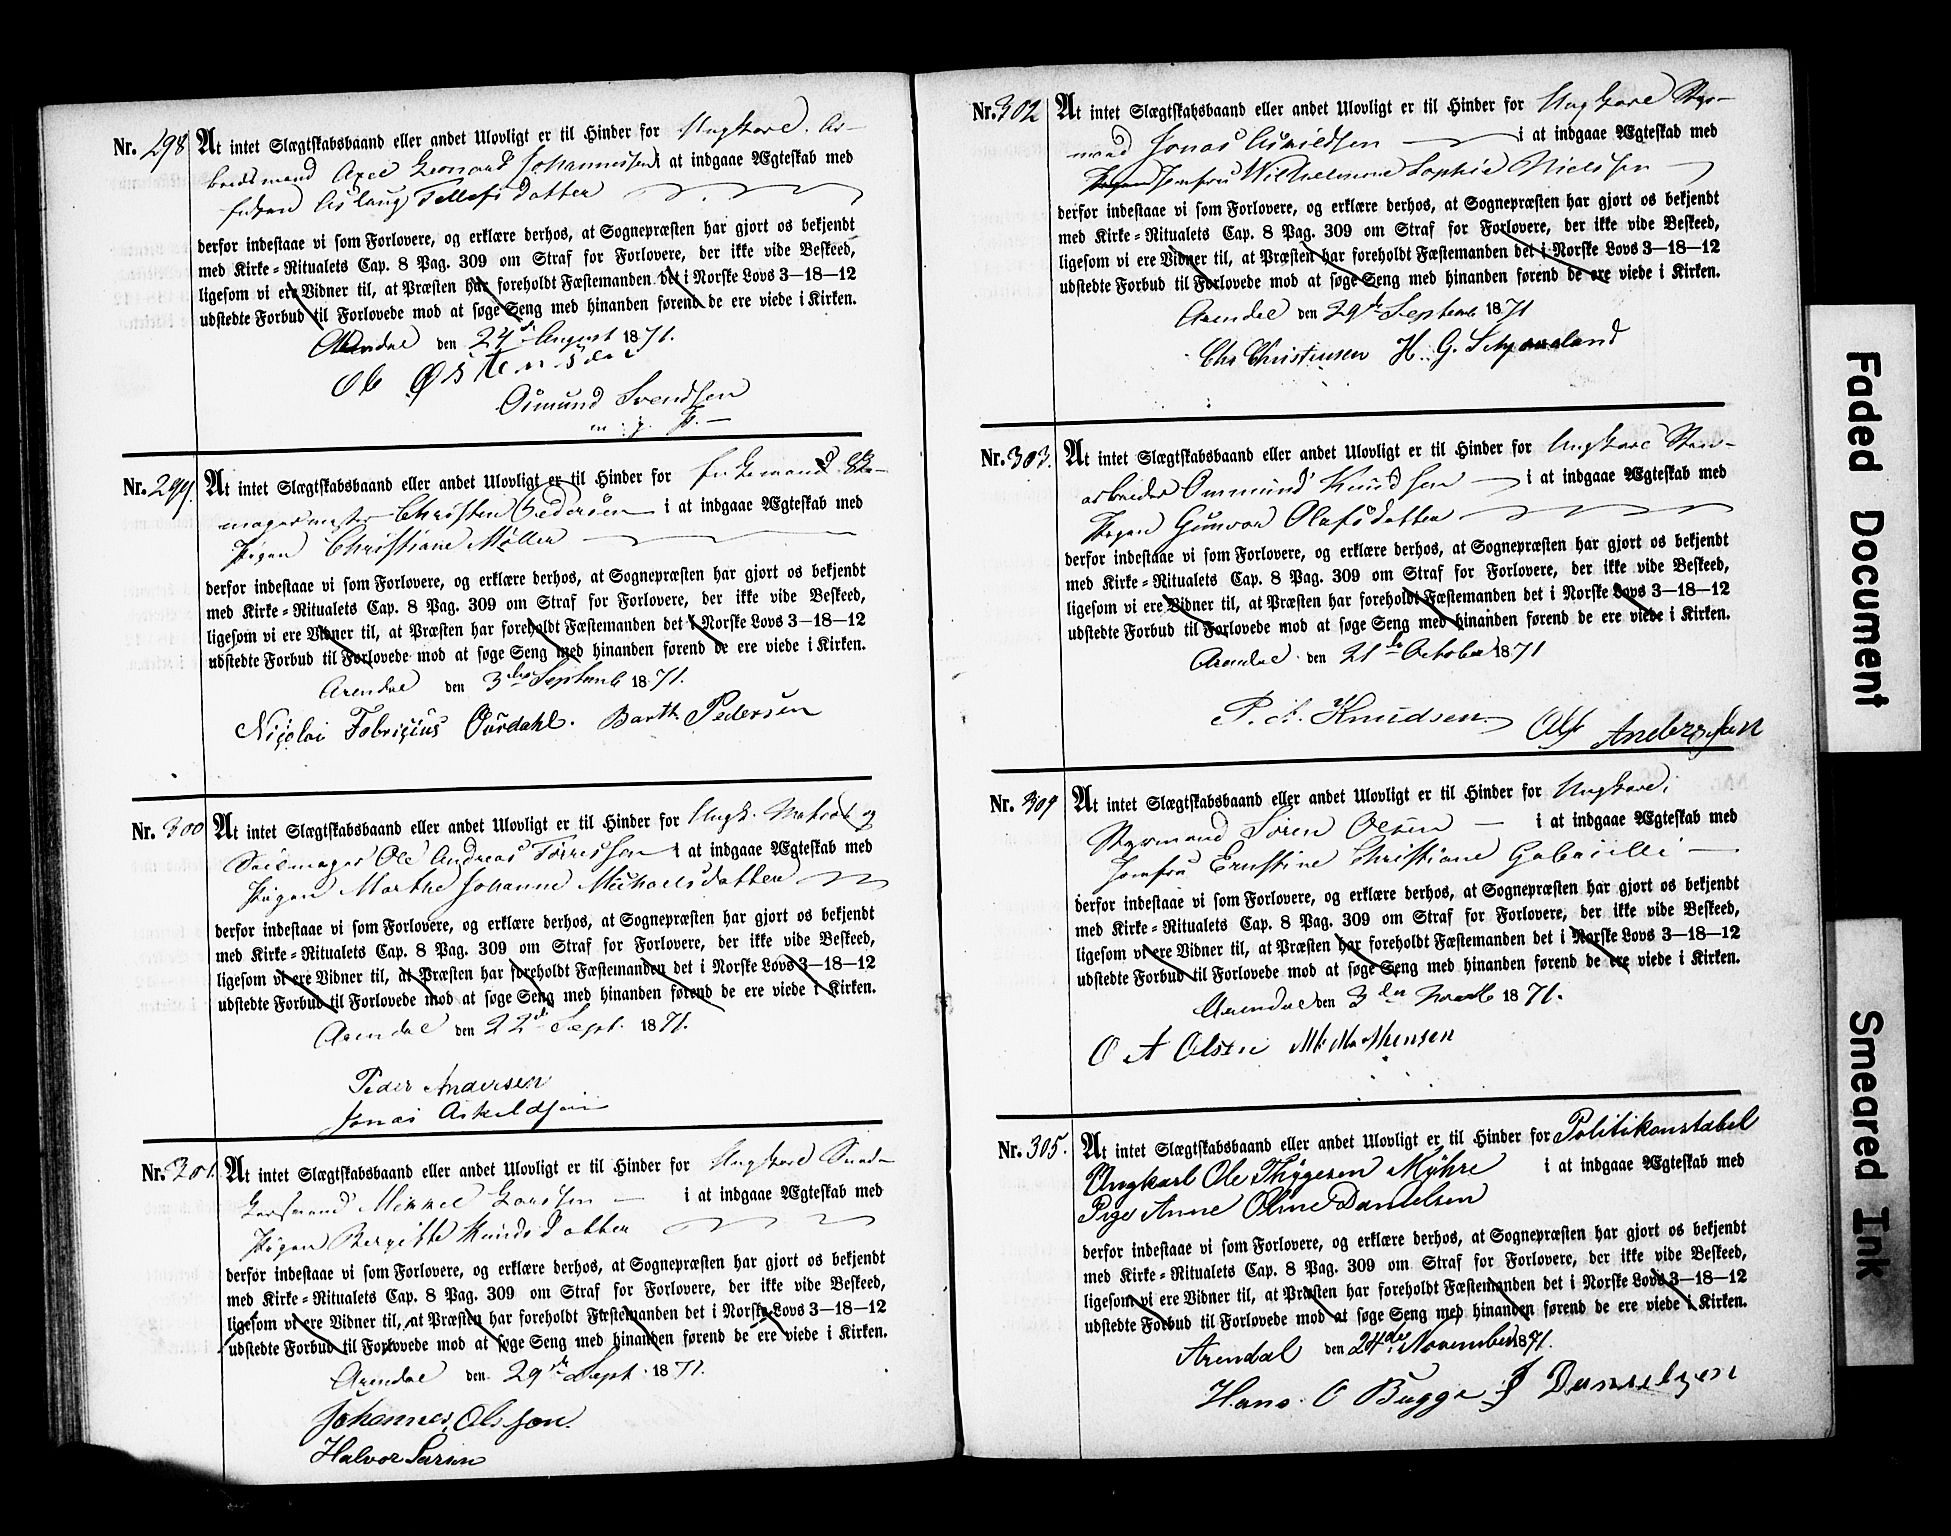 Nr. 298 At intet Slægtskabsbaand eller andet Ulovligt er til Hinder for Ungkarl, Ar-
beidsmand Axel Leonard Johannessen i at indgaae Ægteskab med
Aslaug Tellefsdatter
derfor indestaae vi som Forlovere, og erklære derhos, at Sognepræsten har gjort os bekjendt
med Kirke-Ritualets Cap. 8 Pag. 309 om Straf for Forlovere, der ikke vide Beskeed,
ligesom vi ere Vidner til, at Præsten har foreholdt Fæstemanden det i Norske Lovs 3—18—12
udstedte Forbud til Forlovede mod at søge Seng med hinanden førend de ere viede i Kirken.
Arendal den 24 August 1871.
Ole
Osmund Svendsen
Nr. 299. At intet Slægtskabsbaand eller andet Ulovligt er til Hinder for Enkemand Sko-
magermester Christen Pedersen i at indgaae Ægteskab med
Pigen Christiane Møller
derfor indestaae vi som Forlovere, og erklære derhos, at Sognepræsten har gjort os bekjendt
med Kirke-Ritualets Cap. 8 Pag. 309 om Straf for Forlovere, der ikke vide Beskeed,
ligesom vi ere Vidner til, at Præsten har foreholdt Fæstemanden det i Norske Lovs 3—18—12
udstedte Forbud til Forlovede mod at søge Seng med hinanden førend de ere viede i Kirken.
Arendal den 3die Septemb 1871.
Nicolai Fabricius Barth Pedersen
Nr. 300 At intet Slægtskabsbaand eller andet Ulovligt er til Hinder for Ungk. Matros og
Seilmager Ole Andreas Torressen i at indgaae Ægteskab med
Pigen Marthe Johanne Michaelsdatter
derfor indestaae vi som Forlovere, og erklære derhos, at Sognepræsten har gjort os bekjendt
med Kirke-Ritualets Cap. 8 Pag. 309 om Straf for Forlovere, der ikke vide Beskeed,
ligesom vi ere Vidner til, at Præsten har foreholdt Fæstemanden det i Norske Lovs 3—18—12
udstedte Forbud til Forlovede mod at søge Seng med hinanden førend de ere viede i Kirken.
Arendal den 22 Sept. 1871.
Peder Andersen
Jonas Askeldsen
Nr. 301. At intet Slægtskabsbaand eller andet Ulovligt er til Hinder for Ungkarl
Mikkel i at indgaae Ægteskab med
Pigen Bergitte Knudsdatter
derfor indestaae vi som Forlovere, og erklære derhos, at Sognepræsten har gjort os bekjendt
med Kirke-Ritualets Cap. 8 Pag. 309 om Straf for Forlovere, der ikke vide Beskeed,
ligesom vi ere Vidner til, at Præsten har foreholdt Fæstemanden det i Norske Lovs 3—18—12
udstedte Forbud til Forlovede mod at søge Seng med hinanden førend de ere viede i Kirken.
Arendal den 29 Sept. 1871.
Johannes Olsson
Halvor Larsen
Nr. 302 At intet Slægtskabsbaand eller andet Ulovligt er til Hinder for Ungkarl Styr-
mand Jonas i at indgaae Ægteskab med
Jomfru Wilhelmine Sophie Nielsen
derfor indestaae vi som Forlovere, og erklære derhos, at Sognepræsten har gjort os bekjendt
med Kirke-Ritualets Cap. 8 Pag. 309 om Straf for Forlovere, der ikke vide Beskeed,
ligesom vi ere Vidner til, at Præsten har foreholdt Fæstemanden det i Norske Lovs 3—18—12
udstedte Forbud til Forlovede mod at søge Seng med hinanden førend de ere viede i Kirken.
Arendal den 29 Septemb 1871
Chr Christensen H. G.
Nr. 303. At intet Slægtskabsbaand eller andet Ulovligt er til Hinder for Ungkarl
arbeider Ommund Knudsen i at indgaae Ægteskab med
Pigen Gunvor Olafsdatter
derfor indestaae vi som Forlovere, og erklære derhos, at Sognepræsten har gjort os bekjendt
med Kirke-Ritualets Cap. 8 Pag. 309 om Straf for Forlovere, der ikke vide Beskeed,
ligesom vi ere Vidner til, at Præsten har foreholdt Fæstemanden det i Norske Lovs 3—18—12
udstedte Forbud til Forlovede mod at søge Seng med hinanden førend de ere viede i Kirken.
Arendal den 21 October 1871
Knudsen Anderssen
Nr. 304 At intet Slægtskabsbaand eller andet Ulovligt er til Hinder for Ungkarl,
Styrmand Søren Olsen i at indgaae Ægteskab med
Jomfru Ernstine Christiane Gabrielli
derfor indestaae vi som Forlovere, og erklære derhos, at Sognepræsten har gjort os bekjendt
med Kirke-Ritualets Cap. 8 Pag. 309 om Straf for Forlovere, der ikke vide Beskeed,
ligesom vi ere Vidner til, at Præsten har foreholdt Fæstemanden det i Norske Lovs 3—18—12
udstedte Forbud til Forlovede mod at søge Seng med hinanden førend de ere viede i Kirken.
Arendal den 3 1871.
O A Olsen
Nr. 305. At intet Slægtskabsbaand eller andet Ulovligt er til Hinder for Politikonstabel
Ungkarl Ole Thygesen Myhre i at indgaae Ægteskab med
Pige Anne Oline Danielsen
derfor indestaae vi som Forlovere, og erklære derhos, at Sognepræsten har gjort os bekjendt
med Kirke-Ritualets Cap. 8 Pag. 309 om Straf for Forlovere, der ikke vide Beskeed,
ligesom vi ere Vidner til, at Præsten har foreholdt Fæstemanden det i Norske Lovs 3—18—12
udstedte Forbud til Forlovede mod at søge Seng med hinanden førend de ere viede i Kirken.
Arendal den 24de November 1871.
Hans O Bugge J Danielsen
Faded Document
Smeared Ink